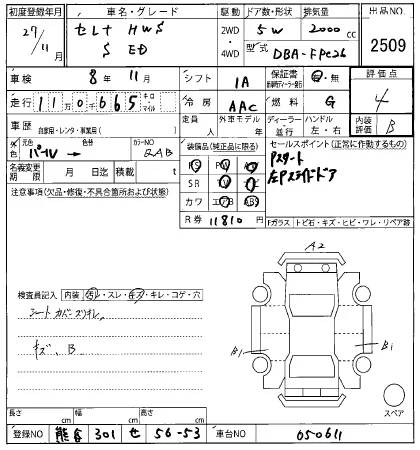 初度登録年月 車名・グレード 駆動 ドア数・形状 排気量 出品NO.
27/11月 セレナ HWS 2WD 5W 2000cc 2509
S ED 4WD 型式 DBA-FPC26
車検 8年11月 シフト IA 保証書 有・無 評価点
走行 110665 キロ・マイル 冷房 AAC 燃料 G 4
車歴 自家用・レンタ・事業用( ) 定員 人 外車モデル ディーラー・並行 ハンドル 左・右 内装評価 B
外色 元色 パール → 色替 カラーNO QAB 装備品(純正品に限る) セールスポイント(正常に作動するもの)
名義変更期限 月 日迄 積載 t PS PW Pスタート
注意事項(欠品・修復・不具合箇所および状態) SR TV 左Pスライドドア
カワ エアB ABS
R券 11810円 Fガラス トビ石・キズ・ヒビ・ワレ・リペア跡
A2
検査員記入 内装 汚レ・スレ・キズ・キレ・コゲ・穴
シートカバーズリキレ B1 B1
キズ、B
長さ cm 幅 cm 高さ cm スペア
登録NO 熊谷 301 せ 56-53 車台NO 050611